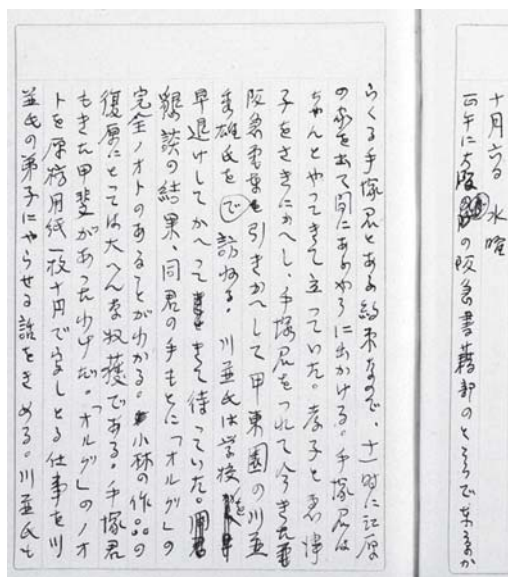 十月六日 水曜
正午に大阪の阪急書籍部のところで東京か
らくる手塚君とある約束なので、十一時に江原
の家を出て間にあふやうに出かける。手塚君は
ちゃんとやってきて立っていた。孝子と
子をさきにかへし、手塚君をつれて今きた
阪急電車を引きかへして甲東園の川並
秀雄氏を訪ねる。川並氏は学校を
早退けしてかへってきて待っていた。
懇談の結果、同君の手もとに「オルグ」の
完全ノオトのあることがわかる。小林の作品の
復原にとっては大へんな収穫である。手塚君
もきた甲斐があったわけだ。「オルグ」のノオ
トを原稿用紙一枚十円で写しとる仕事を川
並氏の弟子にやらせる話をきめる。川並氏も